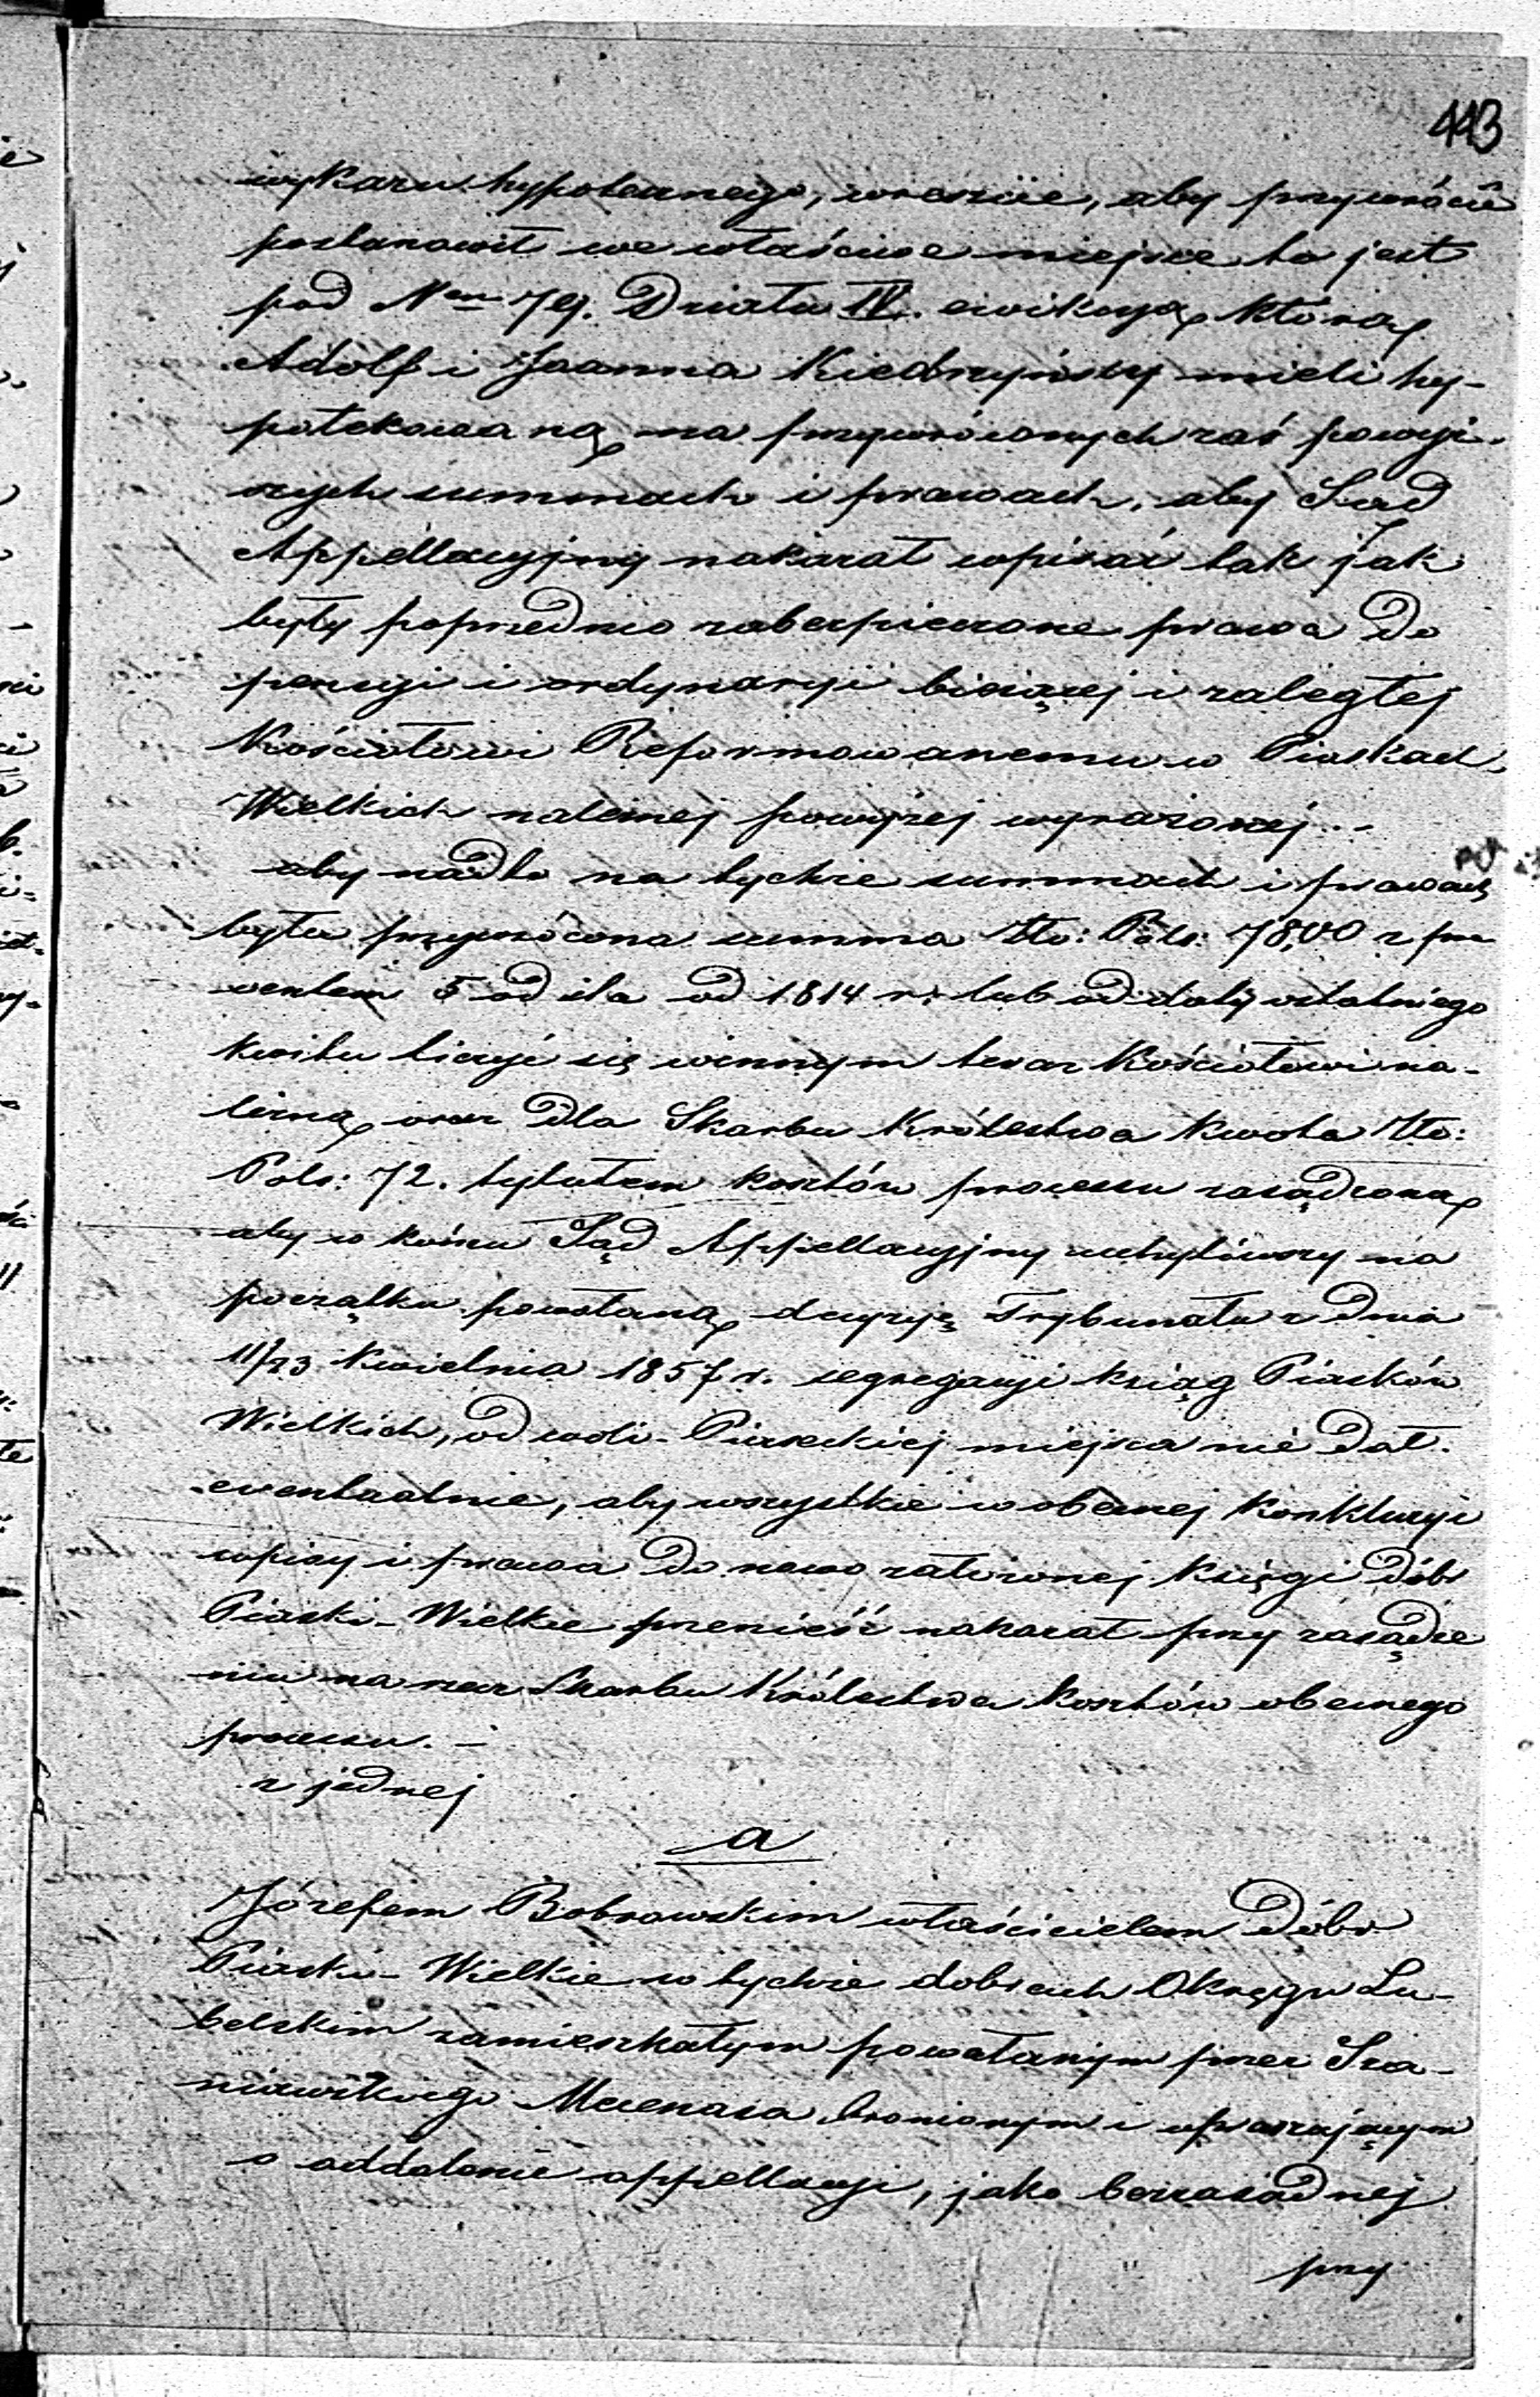 443
wykazu hypotecznego, wreszcie, aby przywrócić
postanowił we właściwe miejsce to jest
pod Nem 79. Działu IV. ewikcyą, którą
Adolf i Joanna Kiedrzyńscy mieli hy-
potekowaną, na przywróconych zaś powyż-
szych summach i prawach, aby Sąd
Appellacyjny nakazał wpisać tak jak
były poprzednio zabezpieczone prawa do
pensyi i ordynaryi bieżącej i zaległej
Kościołowi Reformowanemu w Piaskach
Wielkich należnej powyżej wyrażonej. -
aby nadto na tychże summach i prawach
była przywrócona summa Zło: Pols: 7800 z pro
centem 5 od sta od 1814 r. lub od daty ostatniego
kwitu liczyć się winnym teraz Kościołowi na-
leżną, oraz dla Skarbu Królestwa kwota Zło:
Pols: 72. tytułem kosztów processu zasądzoną,
aby w końcu Sąd Appellacyjny uchyliwszy na
początku powołaną, decyzyę Trybunału z dnia
11/23 Kwietnia 1857 r. segregacyi ksiąg Piasków
Wielkich, od woli-Piaseckiej miejsca nie dał.
ewentualnie, aby wszystkie w obecnej konkluzyi
wpisy i prawa do nowo założonej księgi dóbr
Piaski-Wielkie przenieść nakazał przy zasądze
niu na rzecz Skarbu Królestwa kosztów obecnego
processu. -
z jednej
a
Józefem Bobrowskim właścicielem dóbr
Piaski-Wielkie w tychże dobrach Okręgu Lu-
belskim zamieszkałym powołanym przez Sza-
niawskiego Mecenasa bronionym i upraszającym
o oddalenie appellacyi, jako bezzasadnej
przy